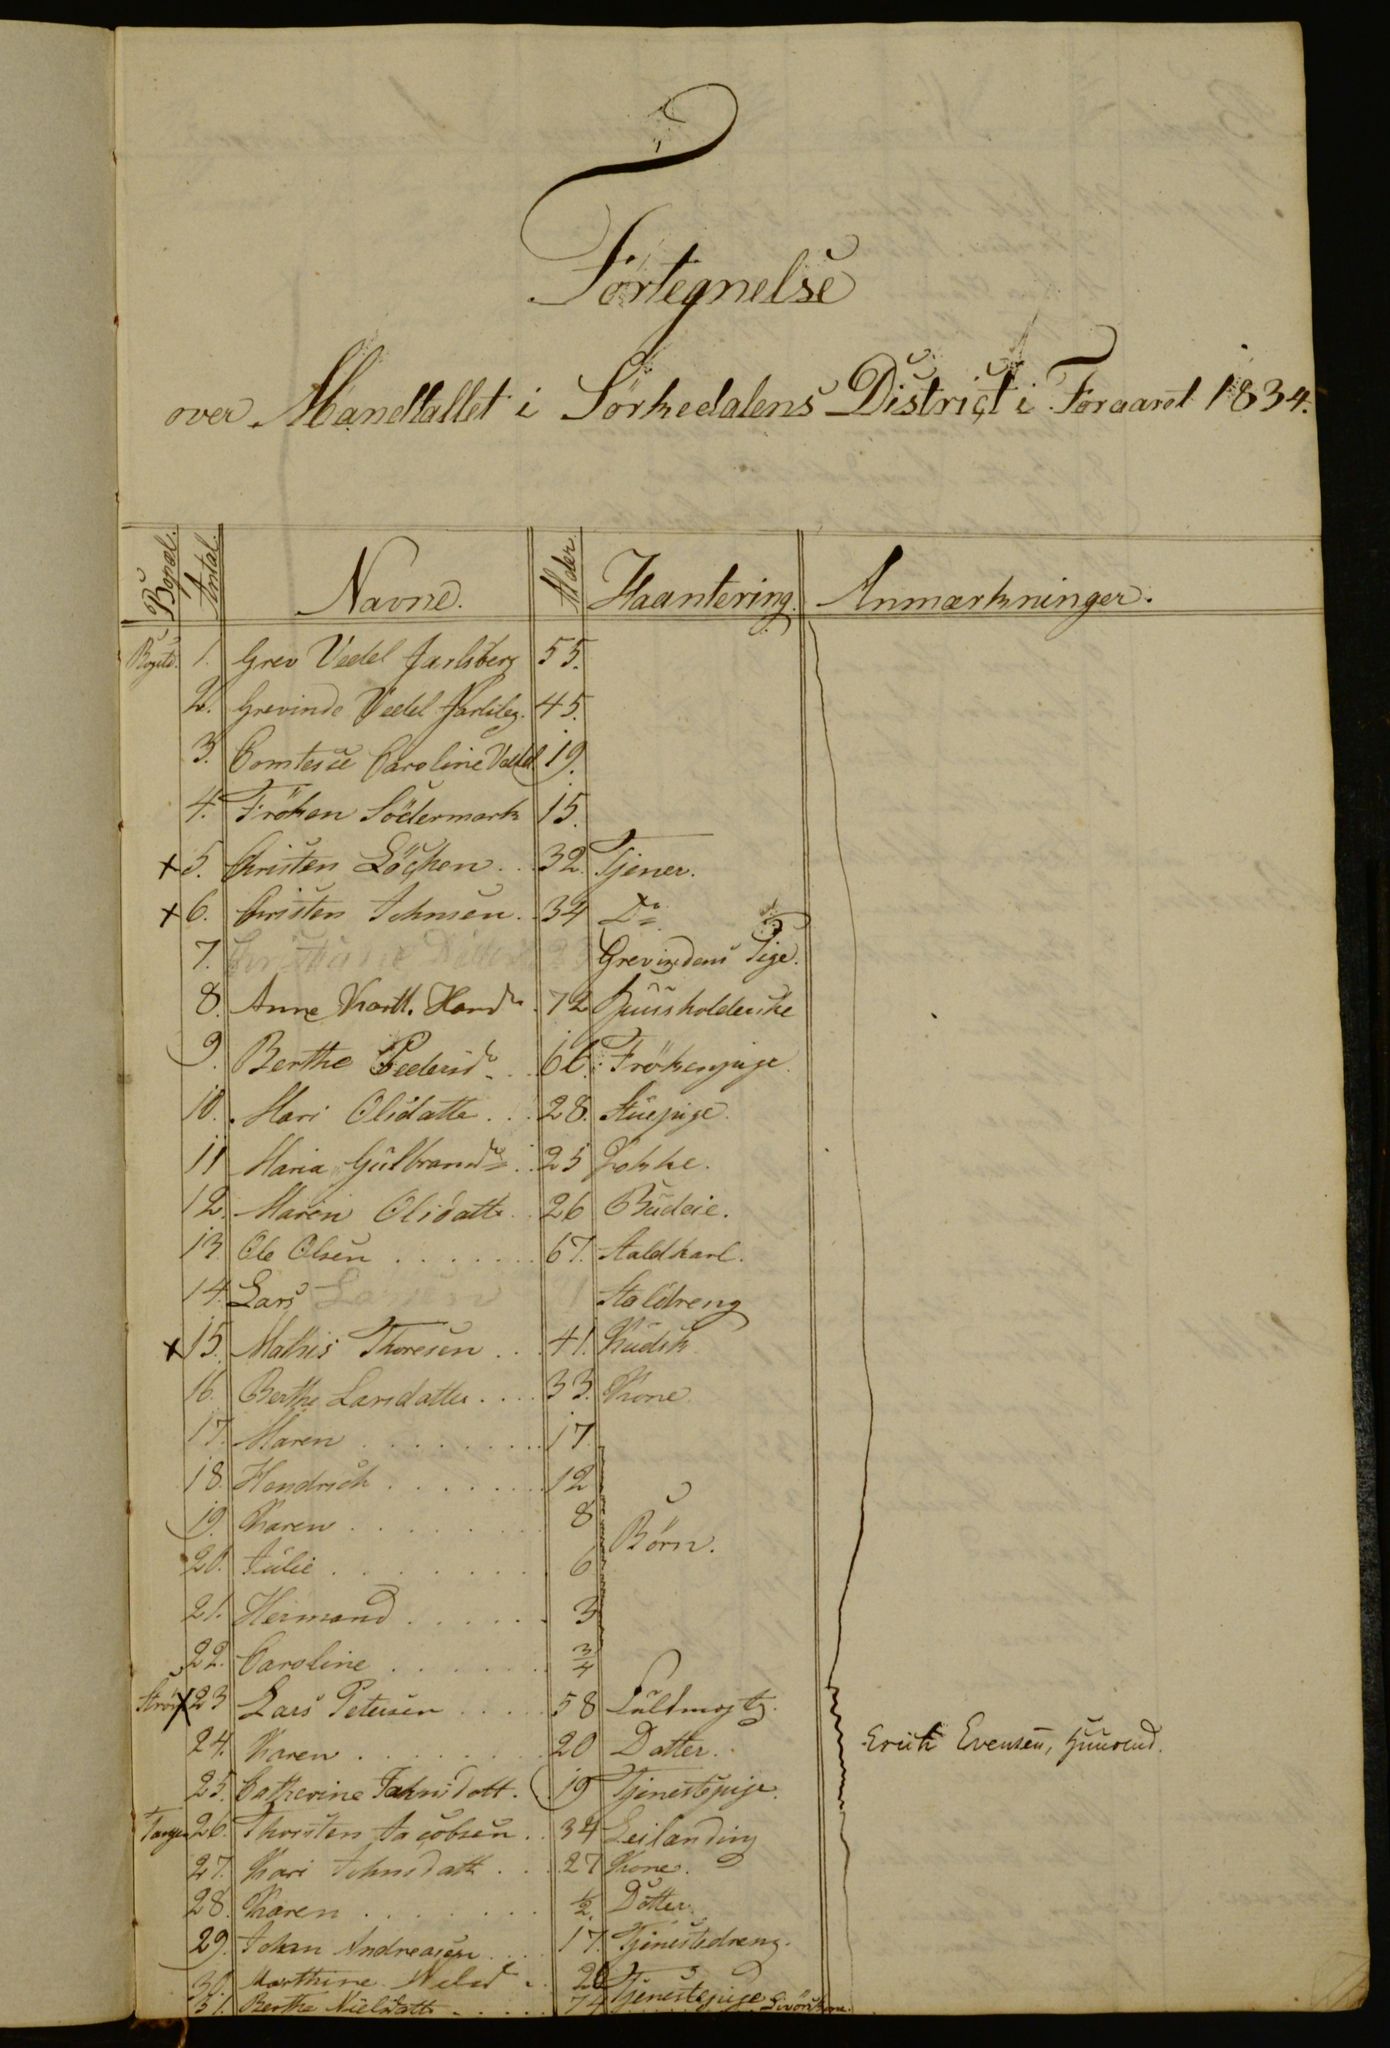 Fortegnelse
over Mandtallet i Sörkedalens District i Foraaret 1834.
Bopæl. Antal. Navne. Alder. Haantering. Anmærkninger.
Bogstd. 1. Grev Vedel Jarlsberg 55.
2. Grevinde Vedel Jarlsbg. 45.
3. Comtesse Caroline Vedel 19.
4. Fröken Södermark 15.
x 5. Christen Löchen .. 32. Tjener.
x 6. Christen Johnsen . 34 Do
7. Grevindens Pige.
8. Anne Hansdr . 72 Huusholderske
9. Berthe Pedersdr .. 66. Frökenpige.
10. Mari Olsdatter ... 28. Stuepige.
11 Maria Gulbrandsdr .. 25 Kokke.
12. Maren Olsdatter . 26 Budeie.
13. Ole Olsen ...... 67. Staldkarl.
14. Lars Larsen Staldreng
x 15. Mathis Thoresen ... 41. Kudsk
16. Berthe Larsdatter .... 33. Kone.
17. Maren ........ 17.
18. Hendrich ....... 12
19. Karen ........ 8
Börn.
20. Julie ........ 6
21. Hermand ...... 3
22. Caroline ...... 3/4
Ström x 23 Lars Petersen .... 58 Fuldmægtg.
24. Karen ........ 20 Datter. Erich Evensen, Huusmd.
25. Catherine Jahnsdatt. 19 Tjenestepige.
Tangen 26. Thorsten Jacobsen .. 34 Leilænding
27. Kari Johnsdatt ... 27 Kone.
28. Karen ....... 1/2. Dotter.
29. Johan Andreasen .... 17. Tjenestedreng.
30. Marthine Nielsd .. 20 Tjenestepige
31. Berthe Nielsdatter ..... 74 Livörskone.